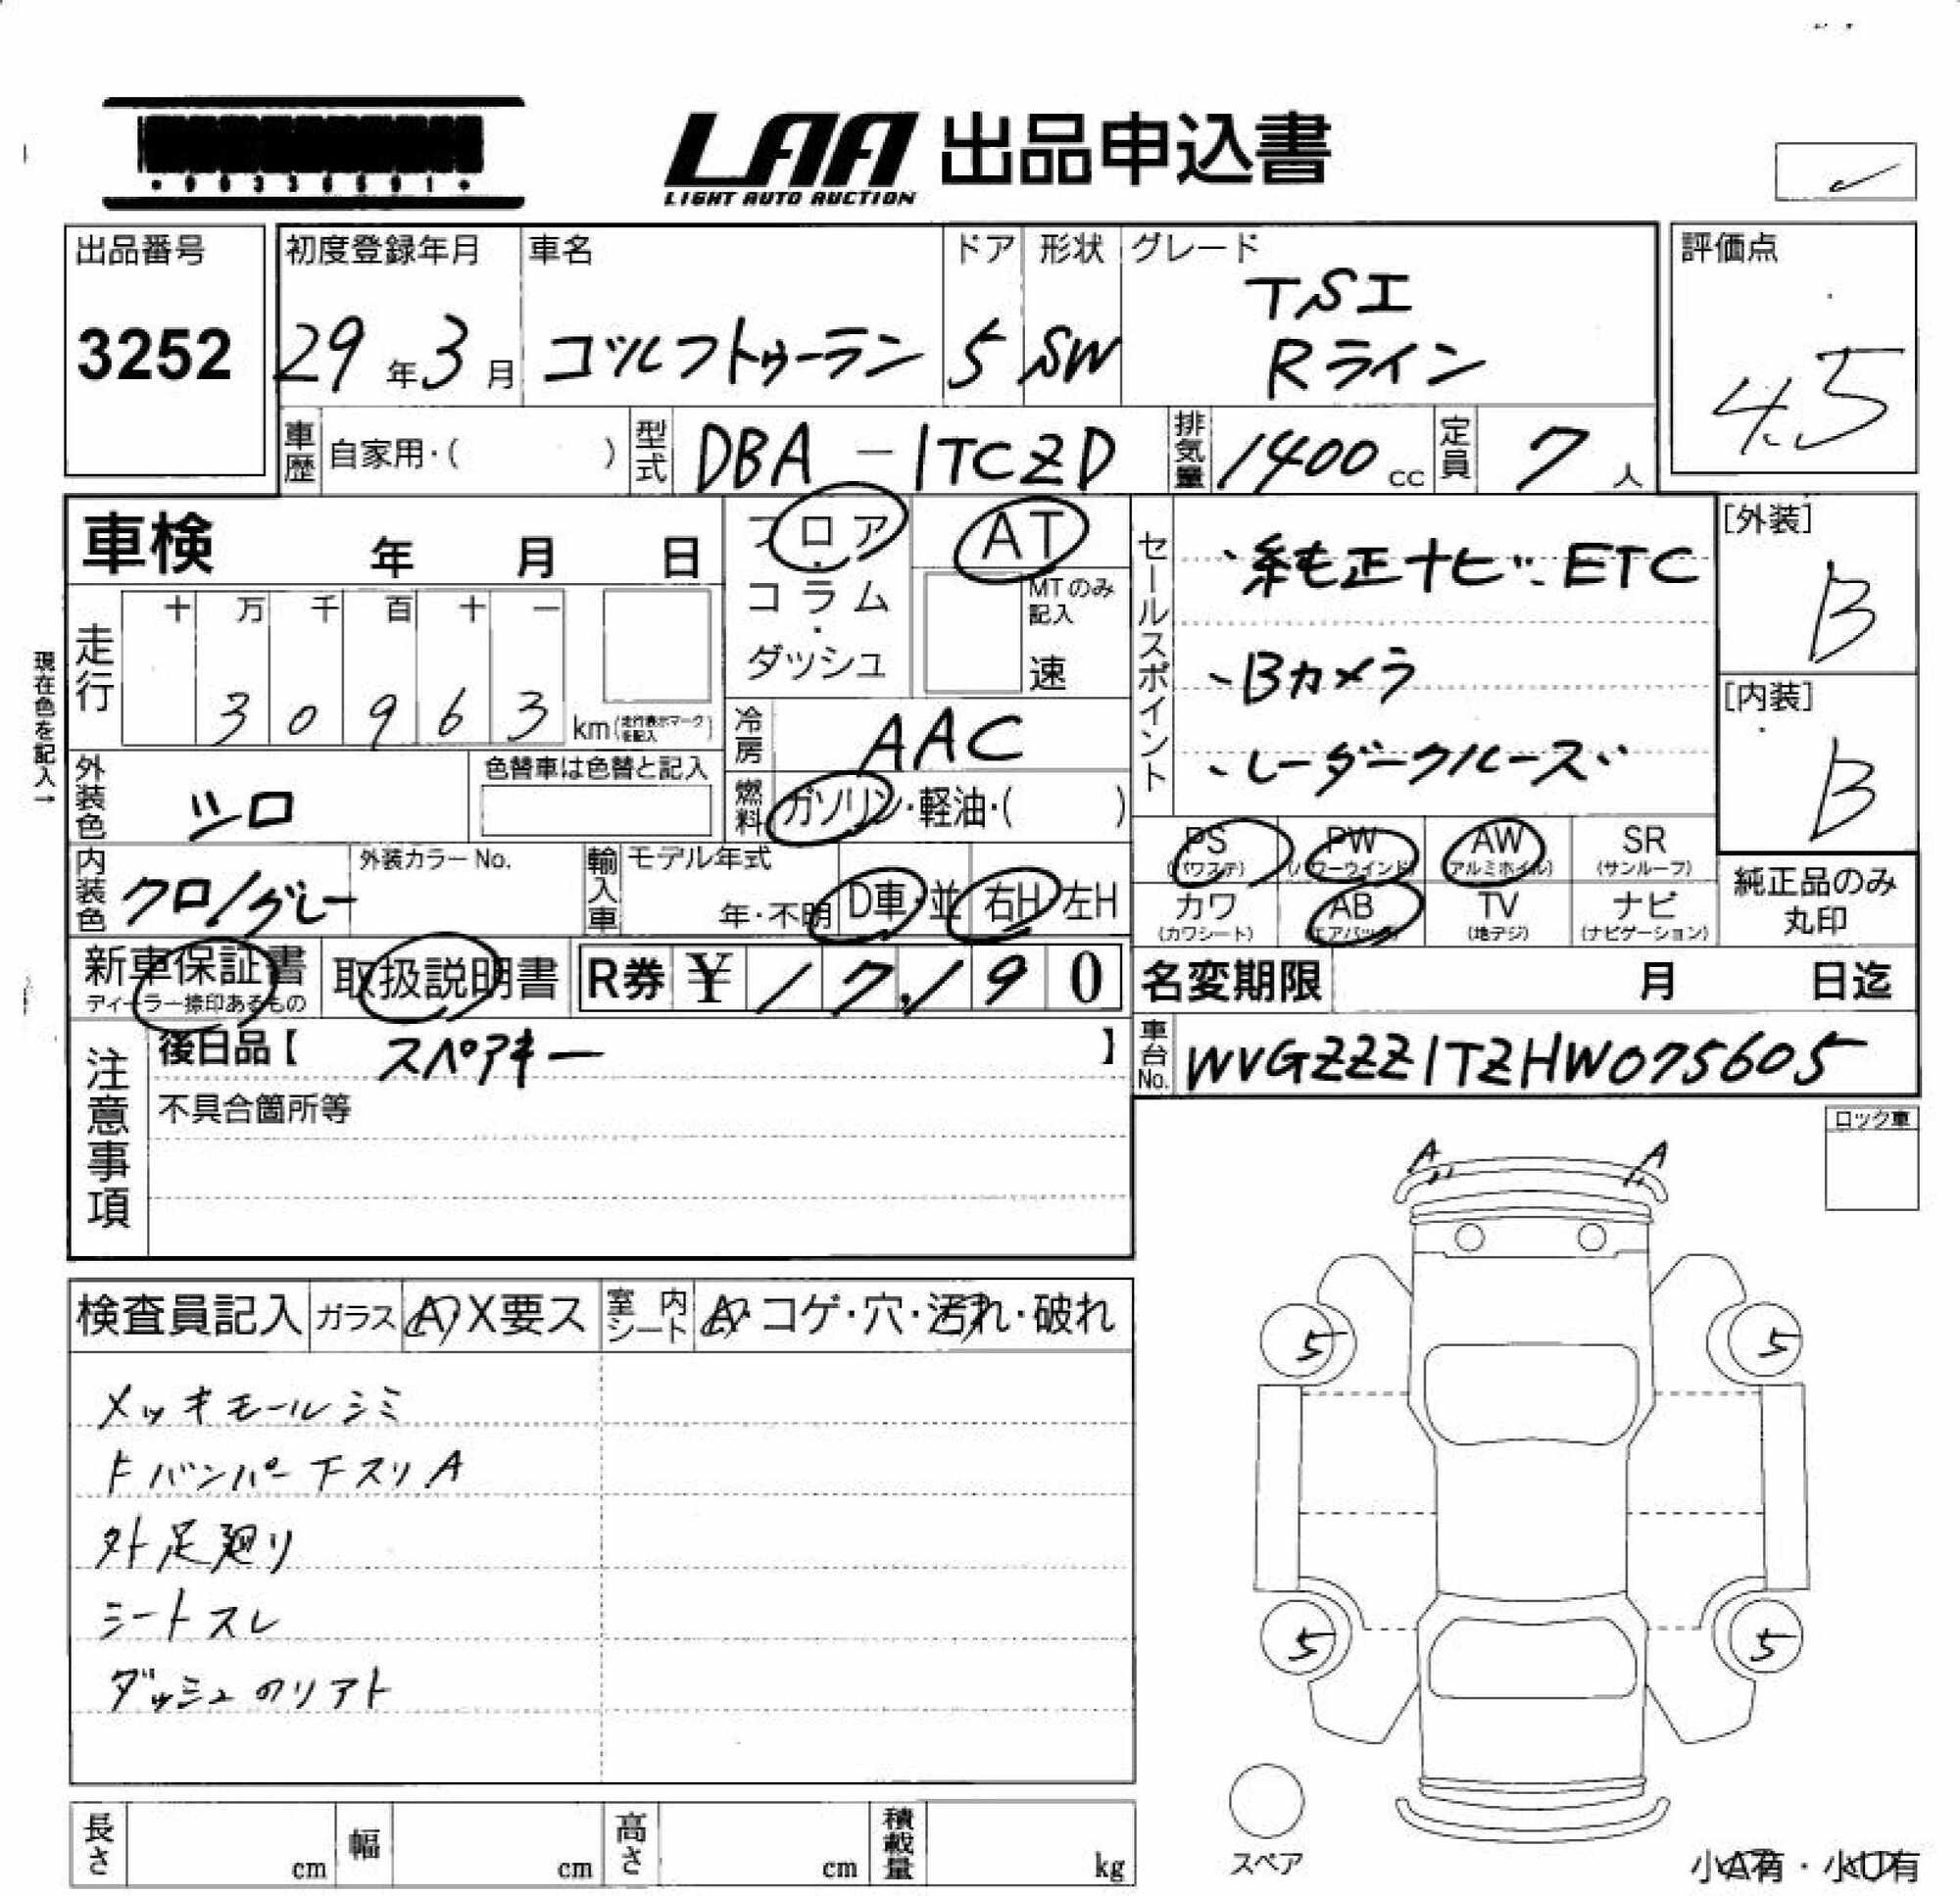 LAA 出品申込書
LIGHT AUTO AUCTION
出品番号
3252
初度登録年月
29年3月
車名
ゴルフトゥーラン
ドア
5
形状
SW
グレード
TSI
Rライン
評価点
4.5
車歴 自家用・( )
型式 DBA-1TCZD
排気量 1400cc
定員 7人
車検 年 月 日
フロア・コラム・ダッシュ
AT
MTのみ記入
速
セールスポイント
、純正ナビ、ETC
、Bカメラ
、レーダークルーズ、
[外装]
B
[内装]
B
現在色を記入→
走行
十 万 千 百 十 一
3 0 9 6 3 km(走行表示マークを記入)
冷房 AAC
燃料 ガソリン・軽油・( )
外装色 シロ
色替車は色替と記入
内装色 クロ/グレー
外装カラーNo.
輸入車
モデル年式
年・不明
D車・並
右H 左H
PS(パワステ) PW(パワーウインド) AW(アルミホイル) SR(サンルーフ)
カワ(カワシート) AB(エアバッグ) TV(地デジ) ナビ(ナビゲーション)
純正品のみ丸印
新車保証書
ディーラー捺印あるもの
取扱説明書
R券 ¥17,190
名変期限 月 日迄
車台No. WVGZZZ1TZHW075605
注意事項
後日品【 スペアキー 】
不具合箇所等
ロック車
A A
検査員記入 ガラス A X要ス
室内シート A・コゲ・穴・汚れ・破れ
メッキモールシミ
Fバンパー下スリA
外足廻り
シートスレ
ダッシュのリアト
5 5
5 5
スペア
長さ cm 幅 cm 高さ cm 積載量 kg
小A有・小U有